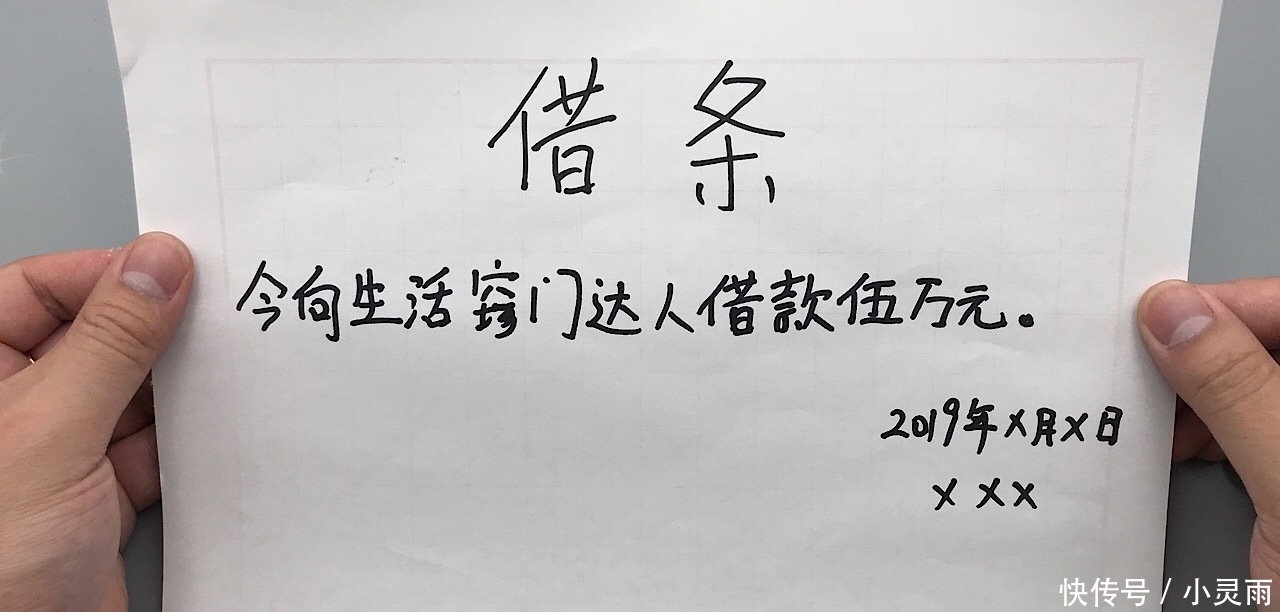 借条
今向生活窍门达人借款伍万元。
2019年X月X日
XXX
快传号 / 小灵雨